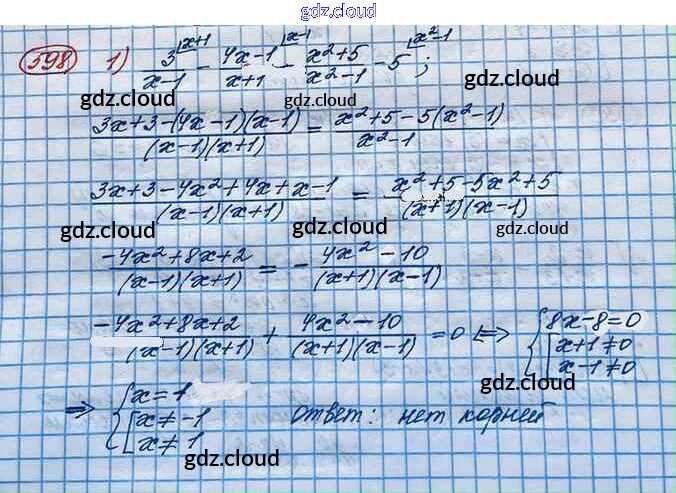 gdz.cloud
598 1) 3/(x-1) |x+1 - (4x-1)/(x+1) |x-1 = (x²+5)/(x²-1) - 5 |x²-1 ;
gdz.cloud gdz.cloud gdz.cloud
(3x+3-(4x-1)(x-1))/((x-1)(x+1)) = (x²+5-5(x²-1))/(x²-1)
gdz.cloud
(3x+3-4x²+4x+x-1)/((x-1)(x+1)) = (x²+5-5x²+5)/((x+1)(x-1))
gdz.cloud gdz.cloud gdz.cloud
(-4x²+8x+2)/((x-1)(x+1)) = -(4x²-10)/((x+1)(x-1))
gdz.cloud
(-4x²+8x+2)/((x-1)(x+1)) + (4x²-10)/((x+1)(x-1)) = 0 ⇔ { 8x-8=0 [ x+1≠0 x-1≠0
gdz.cloud gdz.cloud
⇒ { x=1 [ x≠-1 x≠1 ответ: нет корней
gdz.cloud gdz.cloud